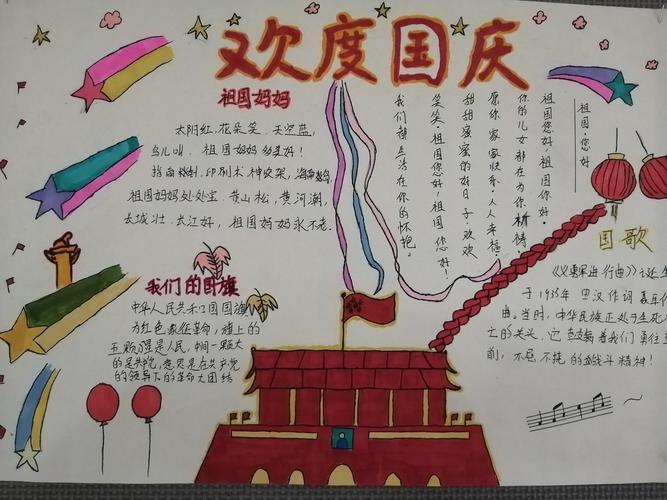 欢度国庆
祖国妈妈
太阳红,花朵笑,天空蓝,
鸟儿叫,祖国妈妈多美好!
指南
祖国妈妈处处宝,黄山松,黄河潮,
长城壮,长江好,祖国妈妈永不老。
我们的国旗
中华人民共和国国旗
为红色,象征革命,旗上的
五颗星是人民,中间一颗大
的是共产党,意思是在共产党
的领导下的革命大团结
祖国·您好
祖国您好,祖国你好。
你的儿女都在为你祈祷。
愿你家家快乐,人人幸福。
甜甜蜜蜜的好日子,欢欢
笑笑。祖国您好,祖国您好!
我们都生活在你的怀抱。
国歌
《义勇军进行曲》
于1935年 田汉作词 聂耳作
曲。当时,中华民族正处于生死存
亡的关头,它鼓舞着我们勇往直
前,不屈不挠的战斗精神!